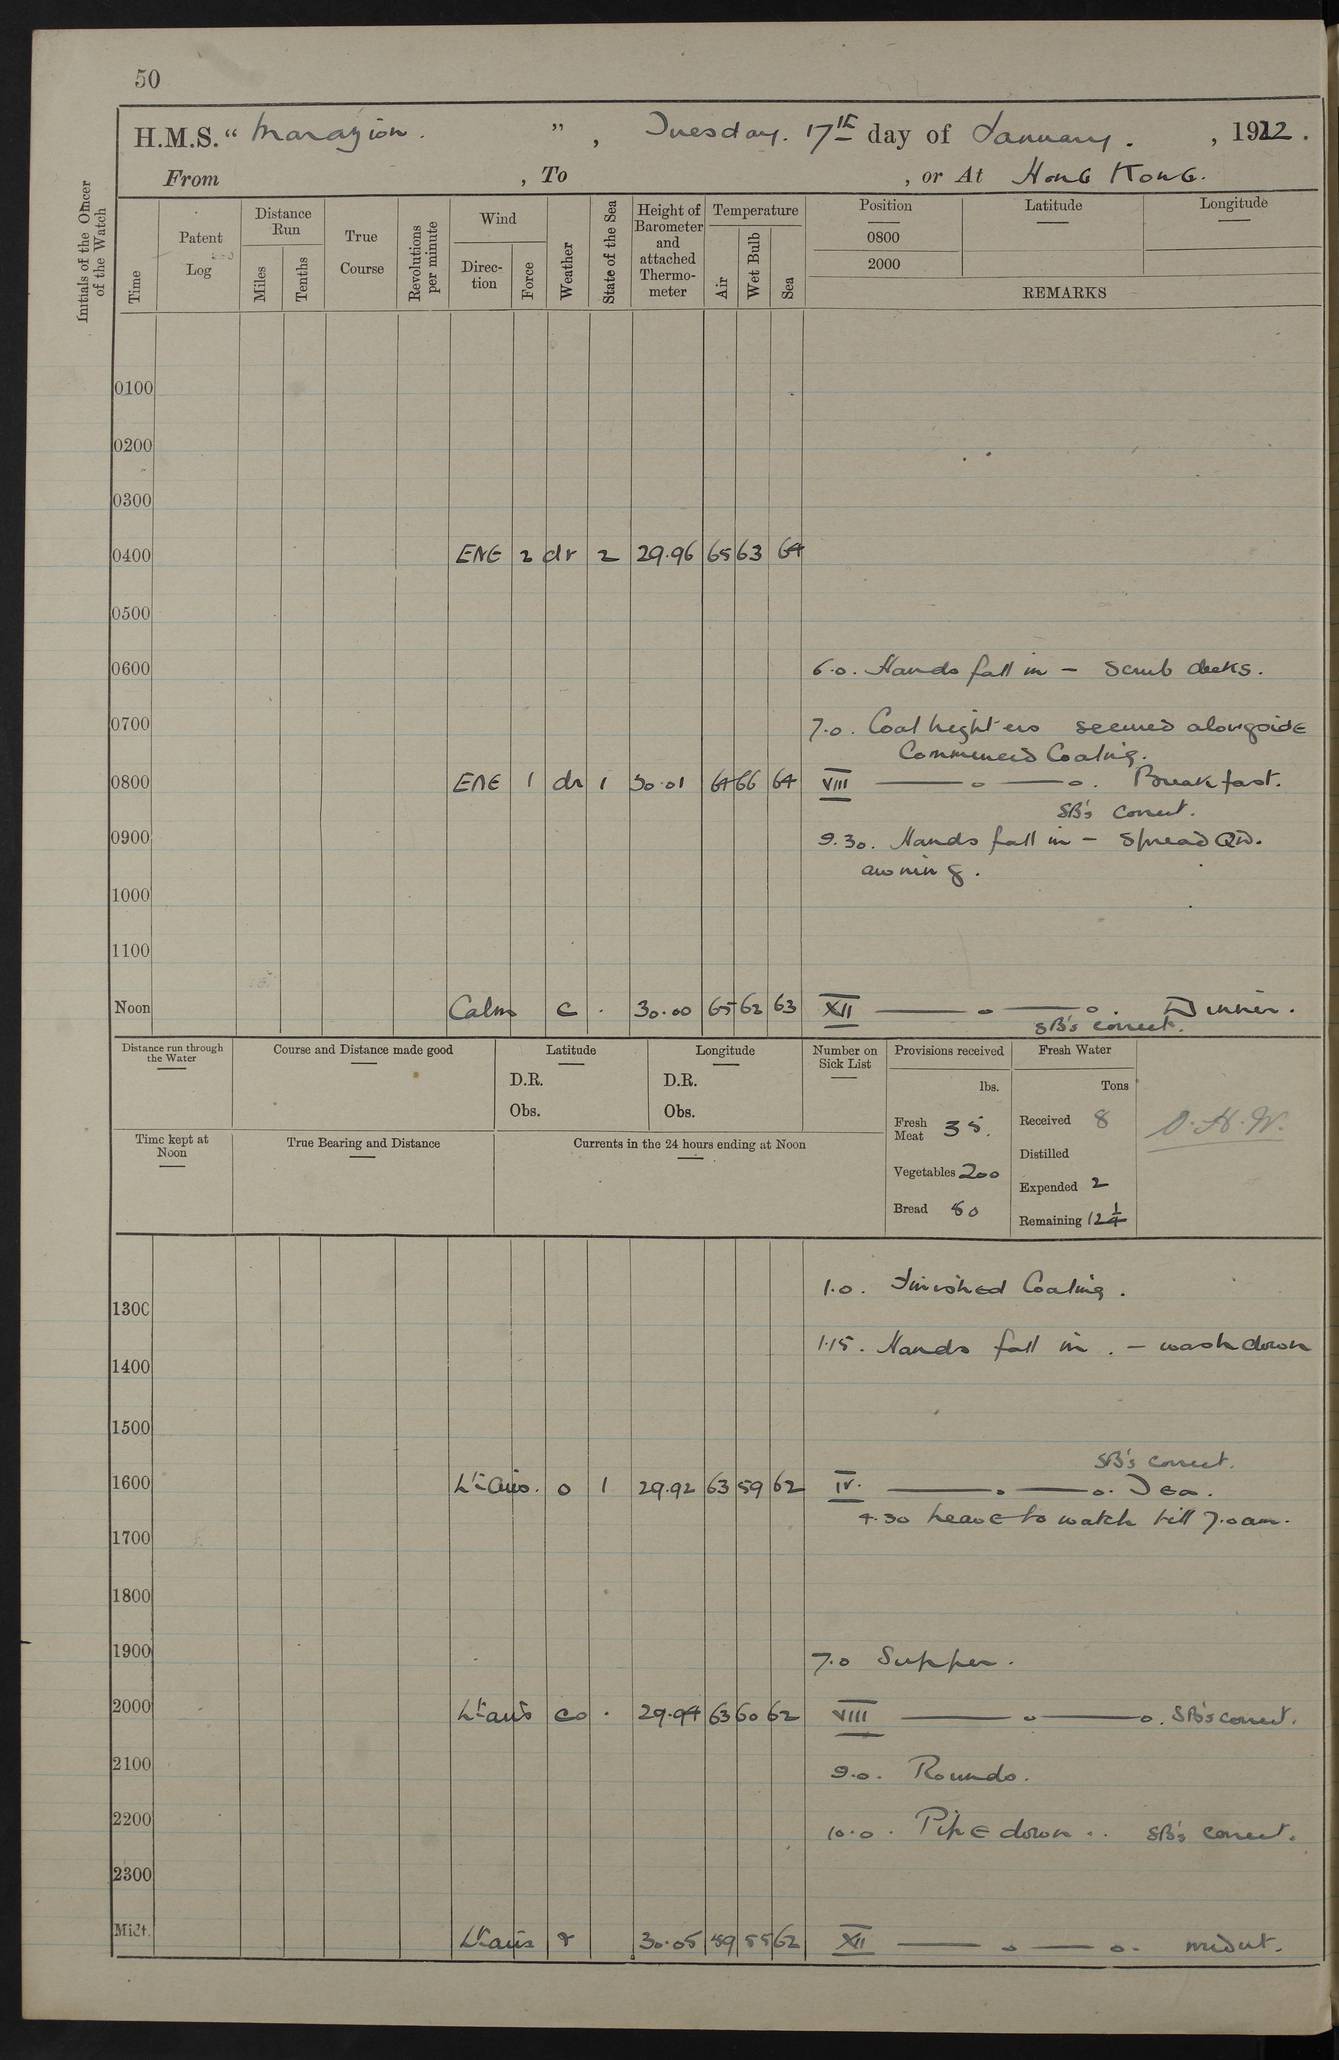 50
H.M.S. “ Marazion. ” , Tuesday. 17th day of January. , 1922.
From , To , or At Hong Kong.
Initials of the Officer of the Watch
Time
Patent Log
Distance Run
Miles
Tenths
True Course
Revolutions per minute
Wind
Direc-tion
Force
Weather
State of the Sea
Height of Barometer and attached Thermo-meter
Temperature
Air
Wet Bulb
Sea
Position
0800
2000
Latitude
Longitude
REMARKS
0100
0200
0300
0400 ENE 2 dr 2 29.96 65 63 64
0500
0600 6.0. Hands fall in – Scrub decks.
0700 7.0. Coal lighters secured alongside
Commenced Coaling.
0800 ENE 1 dr 1 30.01 64 66 64 VIII ——o——o. Breakfast.
SB's correct.
0900 9.30. Hands fall in – Spread QD.
awning.
1000
1100
Noon Calm c . 30.00 65 62 63 XII ——o——o. Dinner.
SB's correct.
Distance run through the Water
Course and Distance made good
Latitude
D.R.
Obs.
Longitude
D.R.
Obs.
Number on Sick List
Provisions received
lbs.
Fresh Meat 35.
Vegetables 200
Bread 80
Fresh Water
Tons
Received 8
Distilled
Expended 2
Remaining 12 1/4
Time kept at Noon
True Bearing and Distance
Currents in the 24 hours ending at Noon
1.0. Finished Coaling.
1300
1.15. Hands fall in. – wash down
1400
1500
SB's correct.
1600 Lt airs. o 1 29.92 63 59 62 IV. ——o——o. Tea.
4.30 leave to watch till 7.0am.
1700
1800
1900 7.0 Supper.
2000 Lt airs co . 29.94 63 60 62 VIII ——o——o. SB's correct.
2100 9.0. Rounds.
2200 10.0. Pipe down.. SB's correct.
2300
Midt. Lt airs r 30.05 59 55 62 XII ——o——o. midnt.